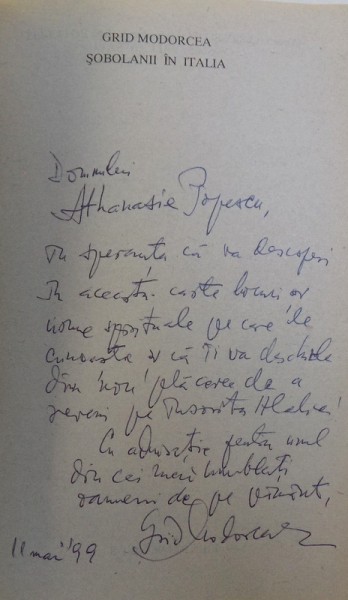 GRID MODORCEA
ŞOBOLANII ÎN ITALIA
Domnului
Athanasie Popescu,
În speranţa că va descoperi
în această carte locuri şi
nume spirituale pe care le
cunoaşte şi că îi va deschide
din nou plăcerea de a
reveni pe însorita Italie!
Cu admiraţie pentru unul
din cei mai umblaţi
oameni de pe pământ,
Grid Modorcea
11 mai '99